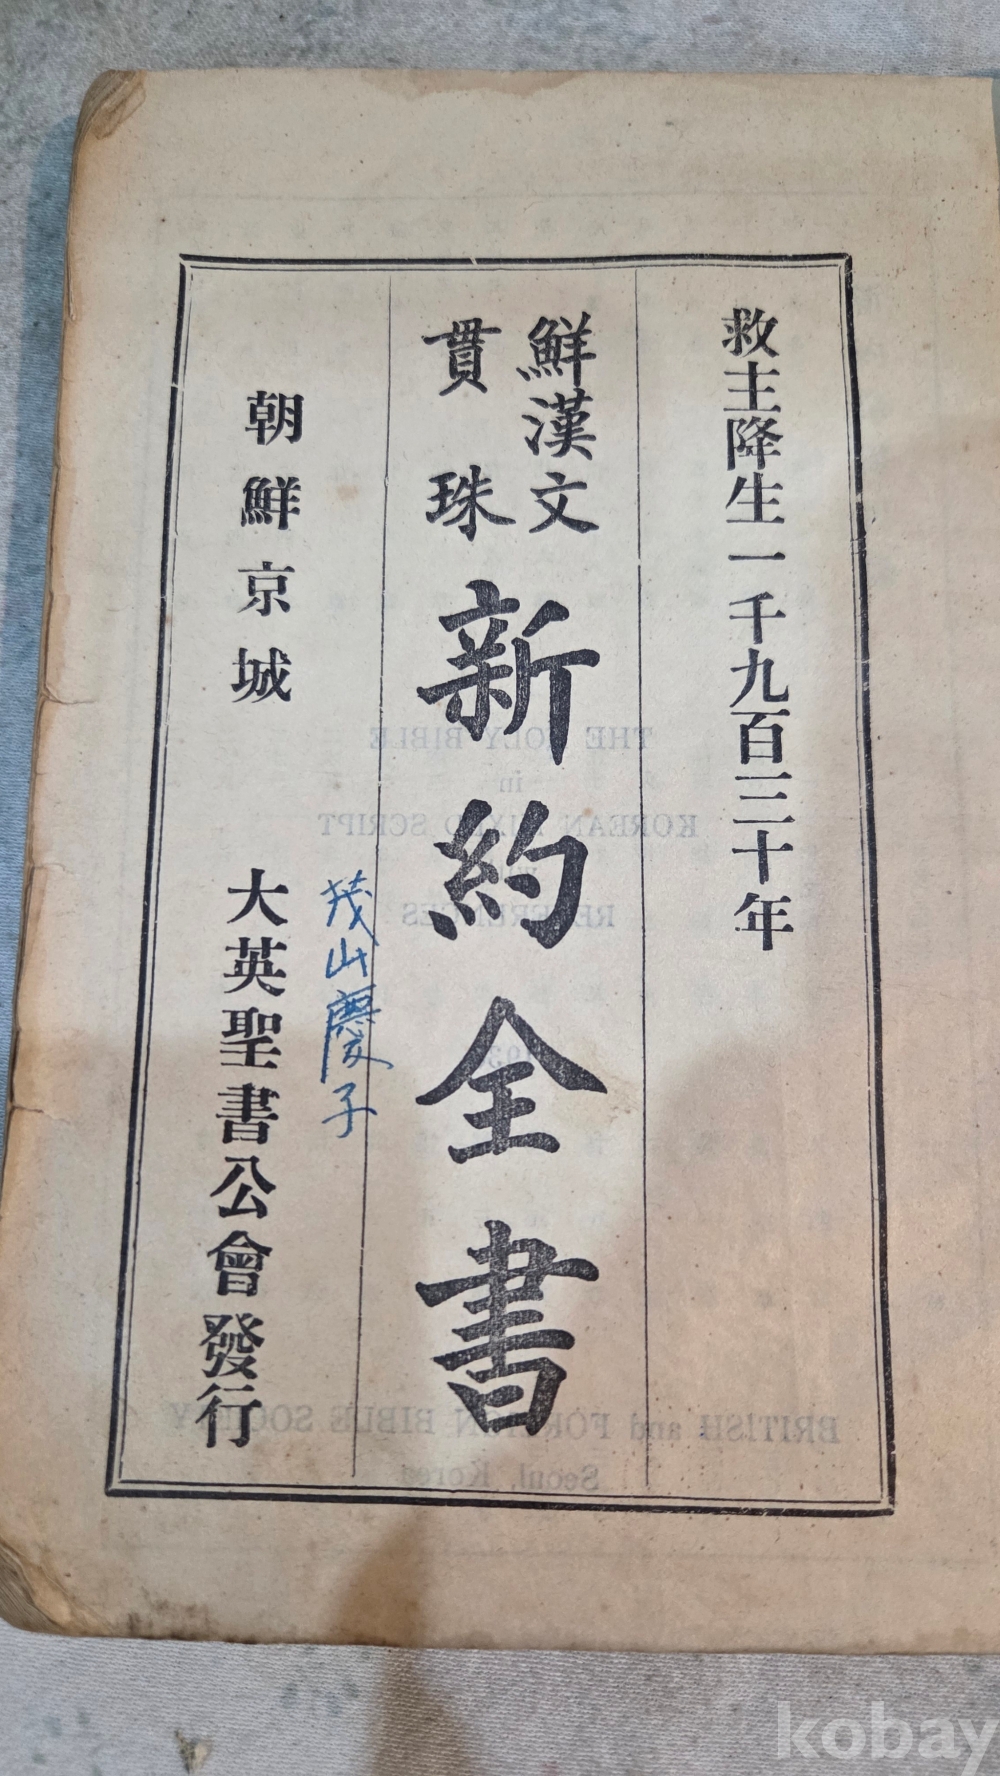 救主降生一千九百三十年
鮮漢文
貫珠
新約全書
茂山慶子
朝鮮京城 大英聖書公會發行
THE HOLY BIBLE
in
KOREAN MIXED SCRIPT
REFERENCES
BRITISH and FOREIGN BIBLE SOCIETY
Seoul, Korea
kobay